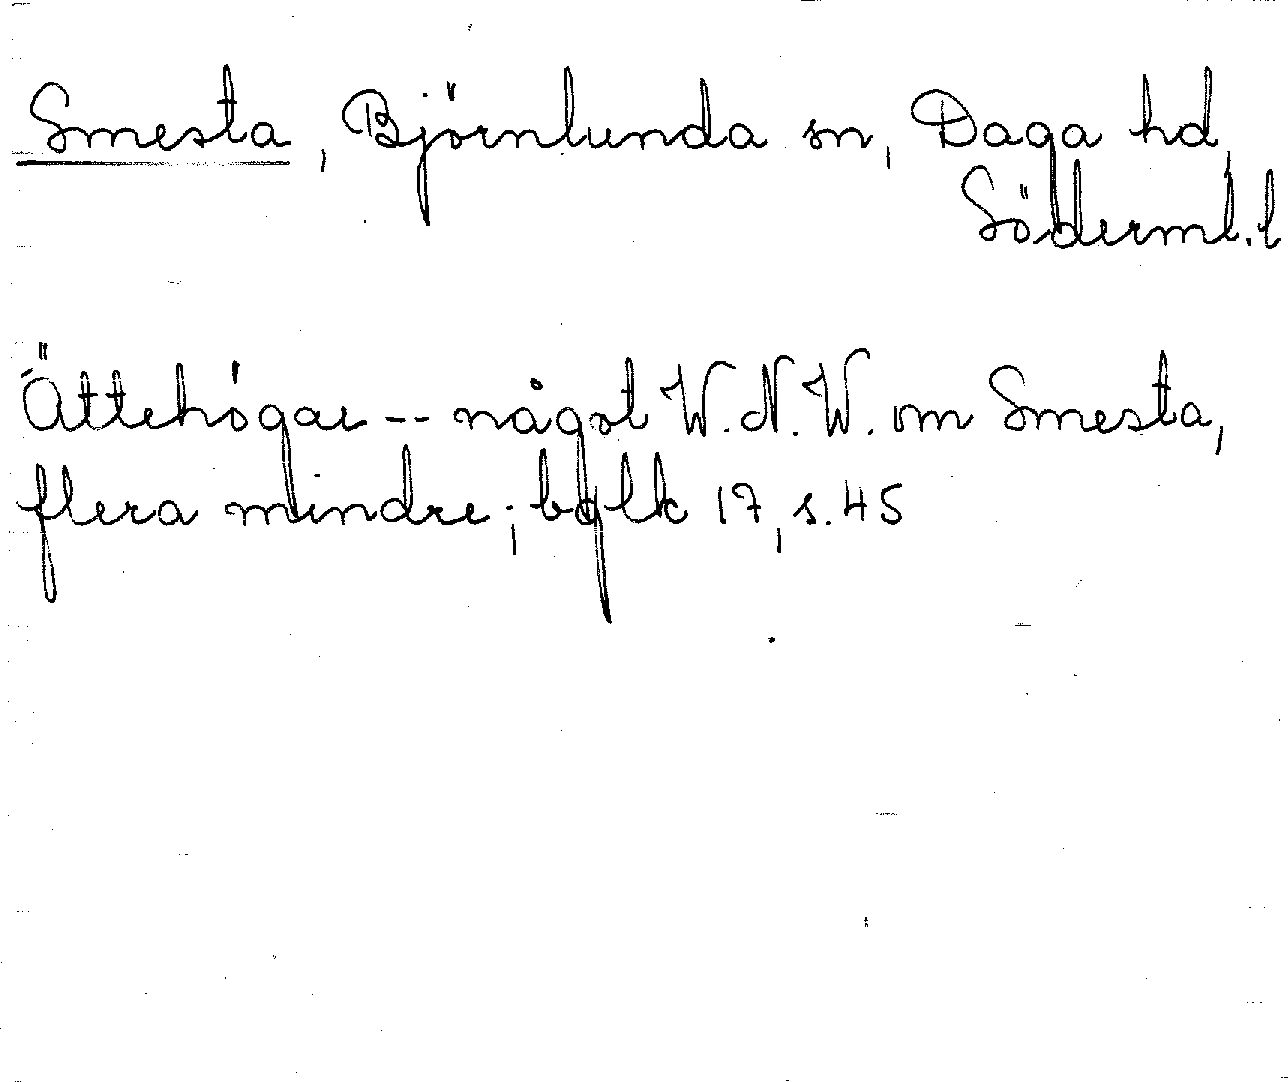 Smesta, Björnlunda sn, Daga hd,
Söderml. l
Ättehögar -- något W.N.W. om Smesta,
flera mindre; bqlk 17, s. 45